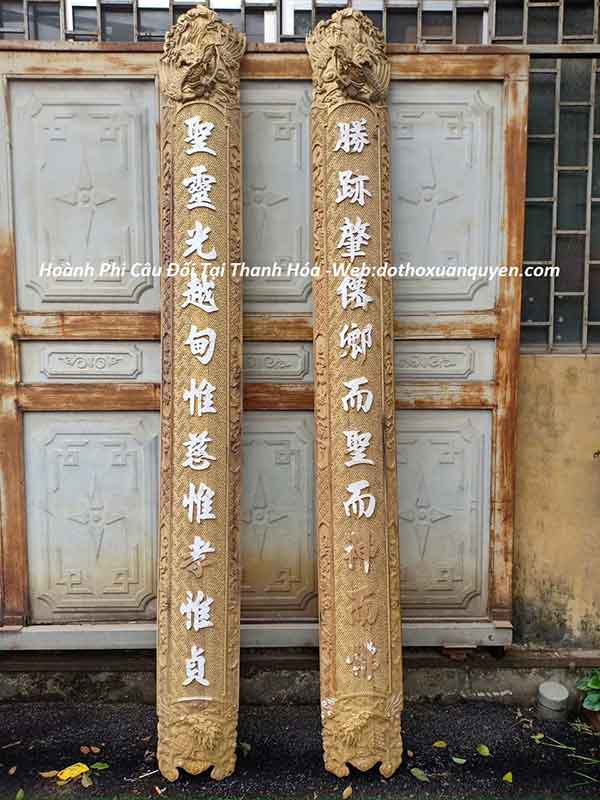 勝跡肇僊鄉而聖而神而
聖靈光越甸惟慈惟孝惟貞
Hoành Phi Câu Đối Tại Thanh Hóa -Web:dothoxuanquyen.com